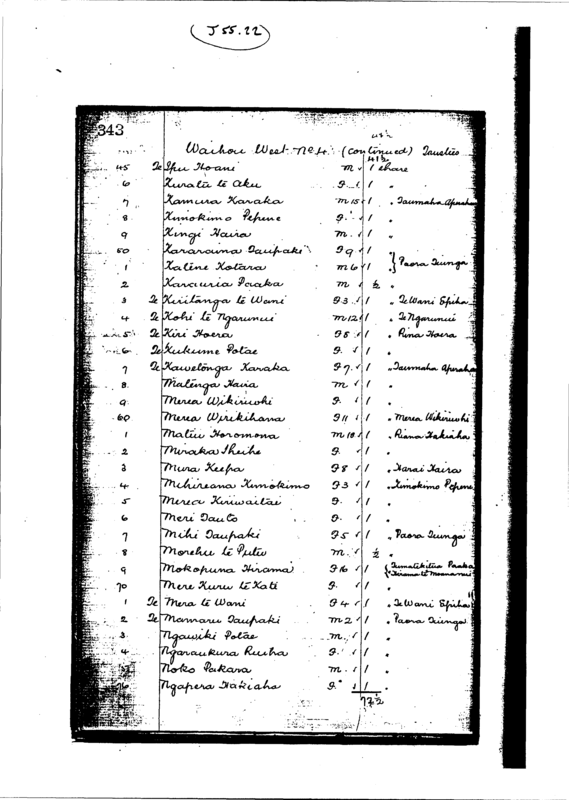 (J 55.22)
343
Waihou West No 4. (continued) Trustees
41½
45 Te Ipu Hoani m 1 share
6 Kuratu te Aku F 1 "
7 Kamura Karaka m 15 1 " Taumaha Aperaha
8 Kimokimo Pepene F 1 "
9 Kingi Haira m 1 "
50 Kararaina Taupaki F 9 1 "
1 Katene Kotara m 6 1 " } Paora Tiunga
2 Karauria Paaka m ½ "
3 Te Kiritanga te Wani F 3 1 " Te Wani Epiha
4 Te Kohi te Ngarunui m 12 1 " Te Ngarunui
5 Te Kiri Hoera F 8 1 " Rina Hoera
6 Te Kukume Potae F 1 "
7 Te Kawetonga Karaka F 7 1 " Taumaha Aperaha
8 Matenga Haira m 1 "
9 Merea Wikiriwhi F 1 "
60 Merea Wirikihana F 11 1 " Merea Wikiriwhi
1 Matiu Horomona m 10 1 " Riana Hakiaha
2 Miraka Iheihe F 1 "
3 Mura Keepa F 8 1 " Harai Haira
4 Mihireana Kimokimo F 3 1 " Kimokimo Pepene
5 Merea Kiriwaitai F 1 "
6 Meri Tauto F 1 "
7 Mihi Taupaki F 5 1 " Paora Tiunga
8 Morehu te Putu m ½ "
9 Mokopuna Hirama F 16 1 " { Paaka
70 Mere Kuru te Kati F 1 "
1 Te Mera te Wani F 4 1 " Te Wani Epiha
2 Te Mamaru Taupaki m 2 1 " Paora Tiunga
3 Ngawiki Potae m 1 "
4 Ngaraukura Ruiha F 1 "
Noko Pakara m 1 "
76 Ngapera Hakiaha F 1 "
72½